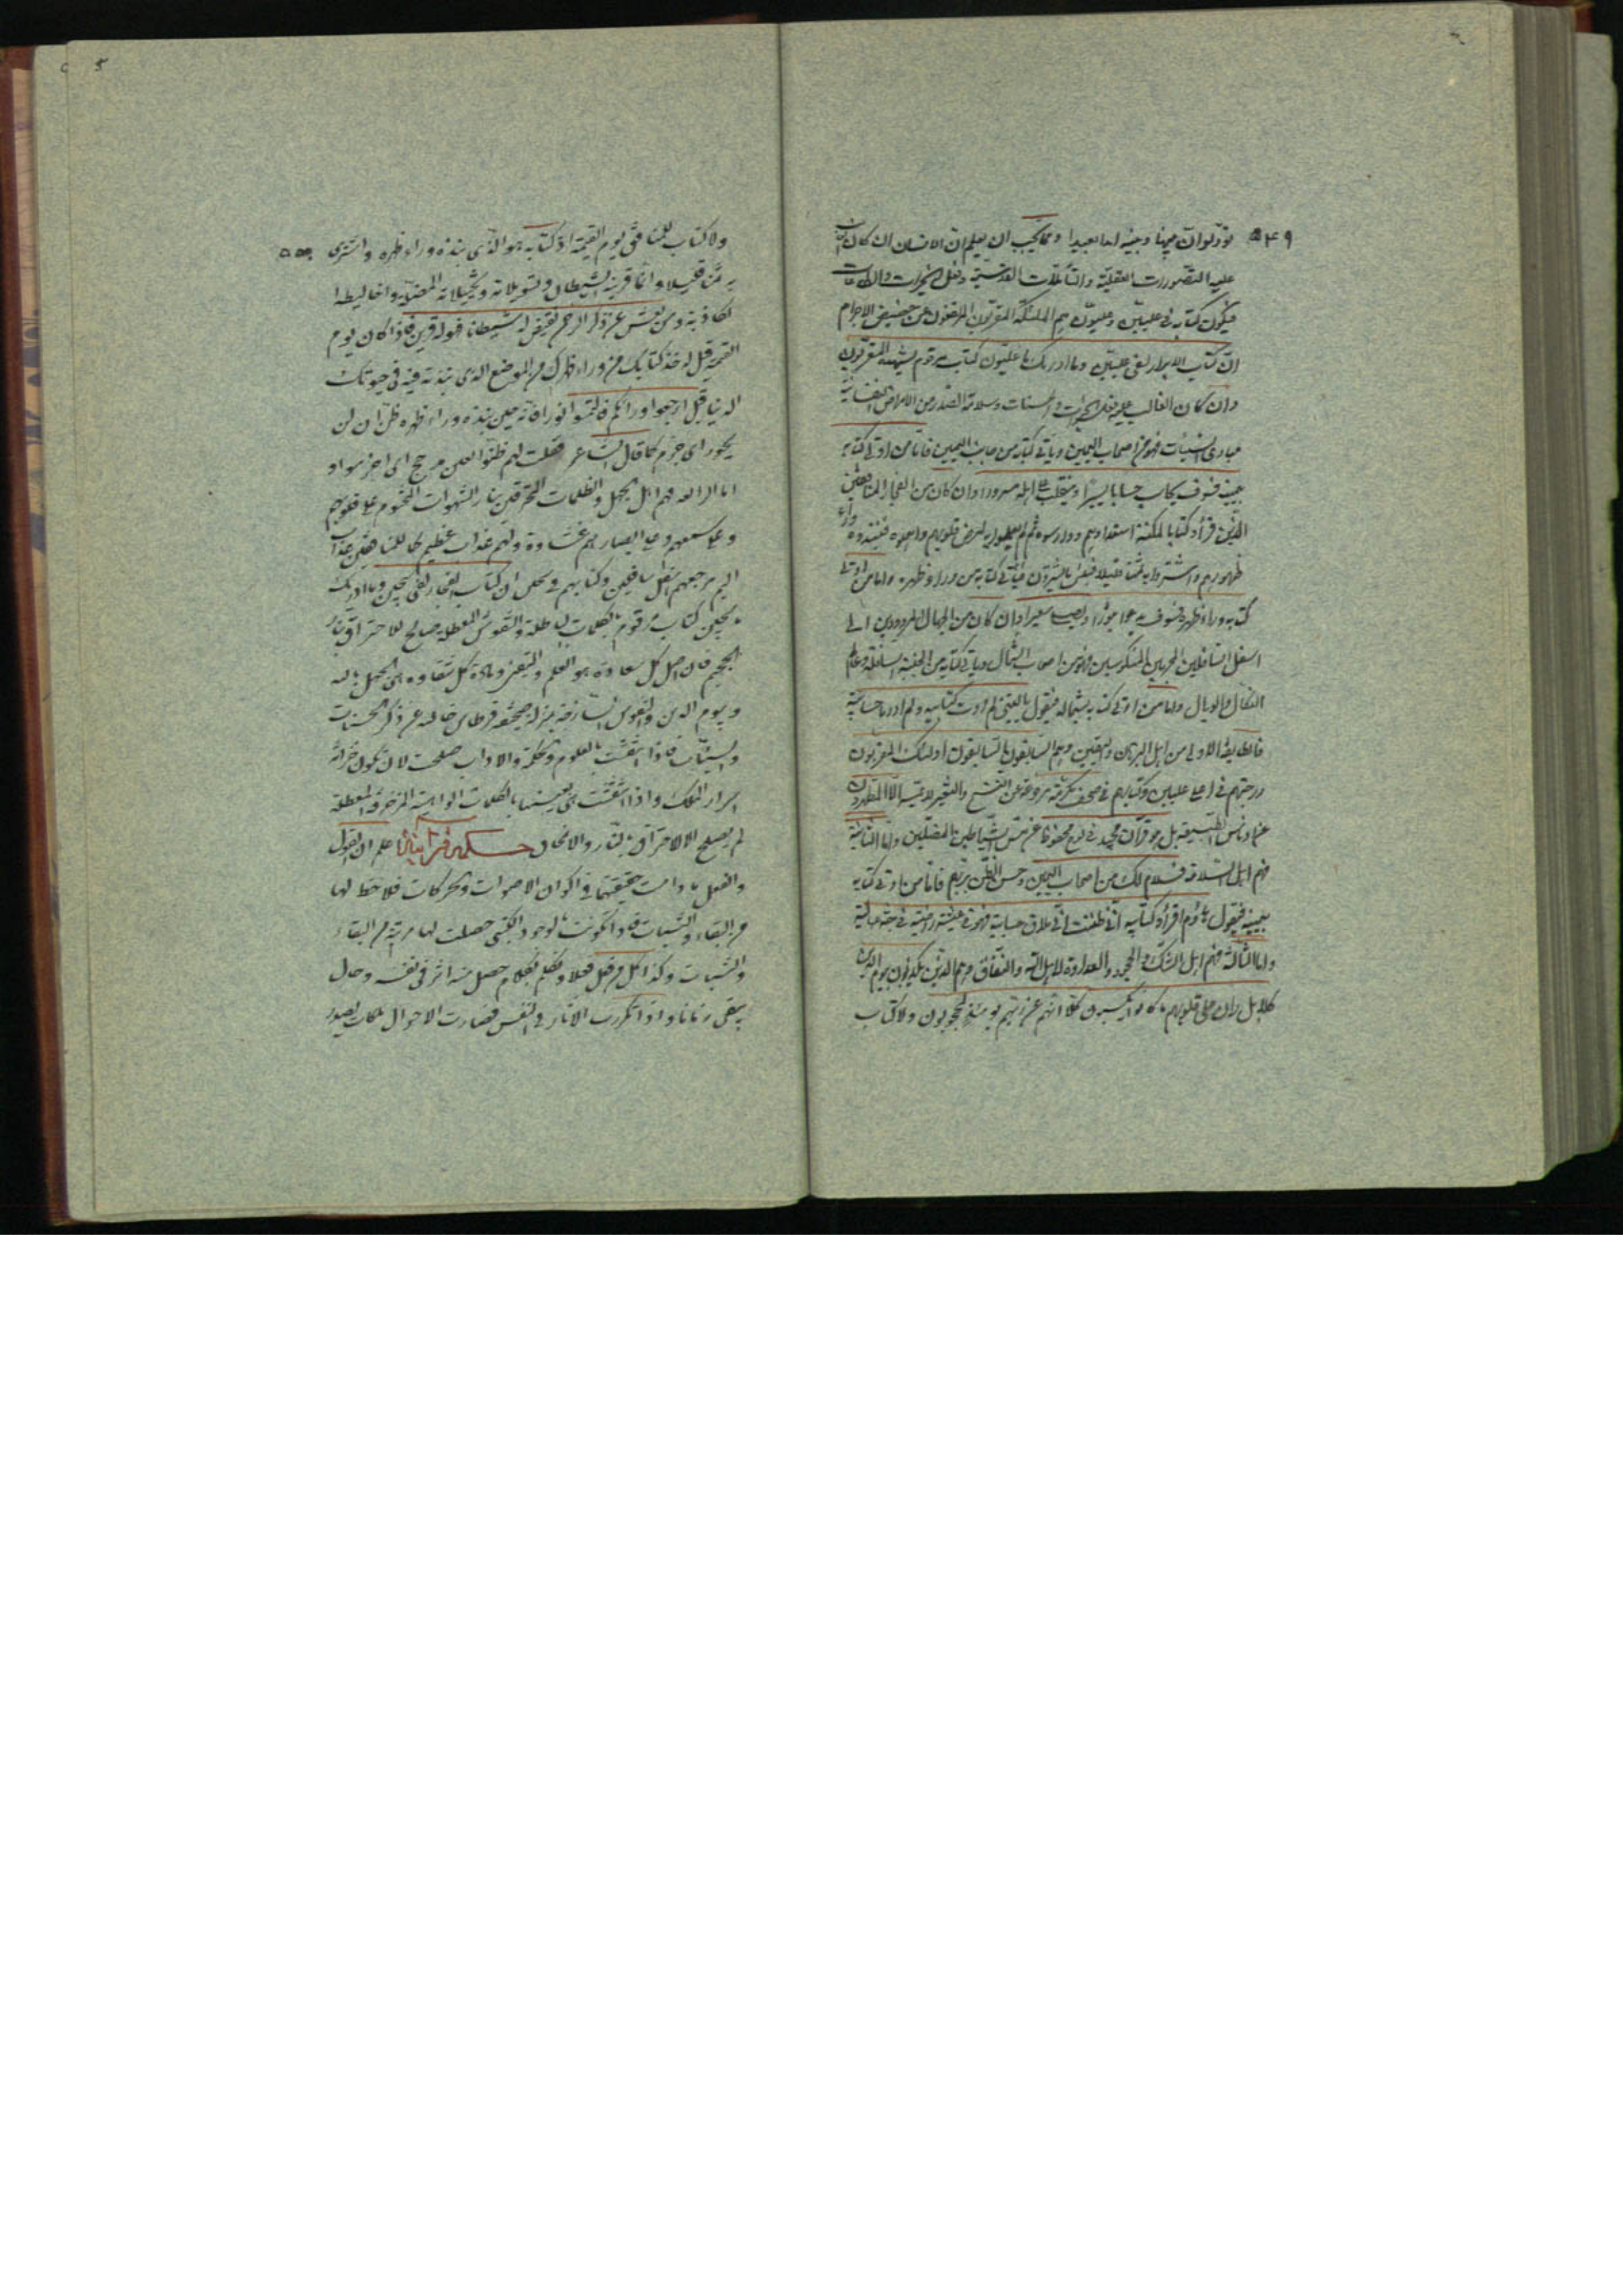 ۵۴۹ تودّ لو انّ بينها وبينه امدا بعيدا و مما يجب ان يعلم ان الانسان ان كان الغالب
عليه التصورات العقلية والتأملات القدسية وفعل الخيرات والطاعات
فيكون كتابه فى عليين وعليون هم الملئكة المقربون المرتفعون عن حضيض الاجرام
ان كتاب الابرار لفى عليين وما ادريك ما عليون كتاب مرقوم يشهده المقربون
وان كان الغالب عليه فعل الخيرات والحسنات وسلامة الصدر من الامراض النفسانية
مبادى السيئات فهو من اصحاب اليمين وياتى كتابه من جانب اليمين فاما من اوتى كتابه
بيمينه فسوف يحاسب حسابا يسيرا وينقلب الى اهله مسرورا وان كان من الفجار المنافقين
الذين قرأوا كتابا لمكنة استعدادهم ودارسوه ثم لم يعملوا به لمرض قلوبهم فنبذوه وراء
ظهورهم واشتروا به ثمنا قليلا فبئس ما يشترون فيأتى كتابه من وراء ظهره واما من اوتى
كتابه وراء ظهره فسوف يدعوا ثبورا ويصلى سعيرا وان كان من الجهال المردودين الى
اسفل السافلين المجرمين المنكوسين فهو من اصحاب الشمال وياتى كتابه من الجنبة السافلة وعالم
النكال والوبال واما من اوتى كتابه بشماله فيقول يا ليتنى لم اوت كتابيه ولم ادر ما حسابيه
فالطايفة الاولى من اهل البرهان واليقين وهم السابقون السابقون اولئك المقربون
درجتهم فى اعلى عليين وكتابهم فى صحف مكرمة مرفوعة عن النسخ والتغير لا يمسه الا المطهرون
عن ادناس الطبيعة بل هو قرآن مجيد فى لوح محفوظ عن مس الشياطين المضلين واما الثانية
فهم اهل السلامة فسلام لك من اصحاب اليمين وحسن الظن بربهم فاما من اوتى كتابه
بيمينه فيقول هاؤم اقرؤا كتابيه انى ظننت انى ملاق حسابيه فهو فى عيشة راضية فى جنة عالية
واما الثالثة فهم اهل الشك والجحود والعداوة لاهل الله والنفاق وهم الذين يكذبون بيوم الدين
كلا بل ران على قلوبهم ما كانوا يكسبون كلا انهم عن ربهم يومئذ لمحجوبون ولا كتاب
ولا كتاب للمنافق يوم القيمة اذ كتابه هو الذى نبذه وراء ظهره واشترى
به ثمنا قليلا وانما قرينه الشيطان وتسويلاته وتخييلاته المضلة واغاليطه
الكاذبة ومن يعش عن ذكر الرحمن نقيض له شيطانا فهو له قرين فاذا كان يوم
القيمة قيل له خذ كتابك من وراء ظهرك من الموضع الذى نبذته فيه فى حيوتك
الدنيا قيل ارجعوا ورائكم فالتمسوا نورا فانه حين نبذه وراء ظهره ظن ان لن
يحور اى جزم كما قال الشاعر فقلت لهم ظنوا بالفى مدجج
اما الرابعة فهم اهل الجهل والظلمات المحترقين بنار الشهوات المختوم على قلوبهم
وعلى سمعهم وعلى ابصارهم غشاوة ولهم عذاب عظيم كما للمنافقين عذاب
اليم مرجعهم اسفل سافلين وكتابهم فى سجين ان كتاب الفجار لفى سجين وما ادريك
ما سجين كتاب مرقوم بالكلمات الباطلة والنقوش المعطلة صالح للاحتراق بنار
الجحيم فان اصل كل سعادة هو العلم واليقين ومادة كل شقاوة هى الجهل بالله
وبيوم الدين والنفوس الساذجة بمنزلة صحيفة قرطاس خالية عن ذكر الحسنات
والسيئات فاذا انتقشت بالعلوم والحكمة والاداب صلحت لان تكون خزانة
اسرار الملك واذا انتقشت بالكلمات الواهية المزخرفة المعطلة
لم يصلح الا للاحتراق بالنار والانمحاق حكمة قرآنية اعلم ان القول
والفعل مادامت حقيقتهما فى اكوان الاصوات والحركات فلا حظ لها
من البقاء والثبات فاذا تكونت بالوجود الكتبى حصلت لها مرتبة من البقاء
والثبات وكذا كل من فعل فعلا وتكلم بكلام حصل منه اثر فى نفسه وحال
يبقى زمانا واذا تكررت الاثار فى النفس فصارت الاحوال ملكات يصدر